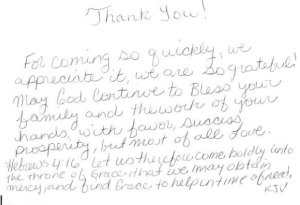 Thank You!
For coming so quickly, we
appreciate it, we are so grateful!
May God Continue to Bless your
family and the work of your
hands, with favor, success,
prosperity, but most of all Love.
Hebrews 4:16 Let us therefore come boldly unto
the throne of Grace, that we may obtain
mercy, and find Grace to help in time of need.
KJV